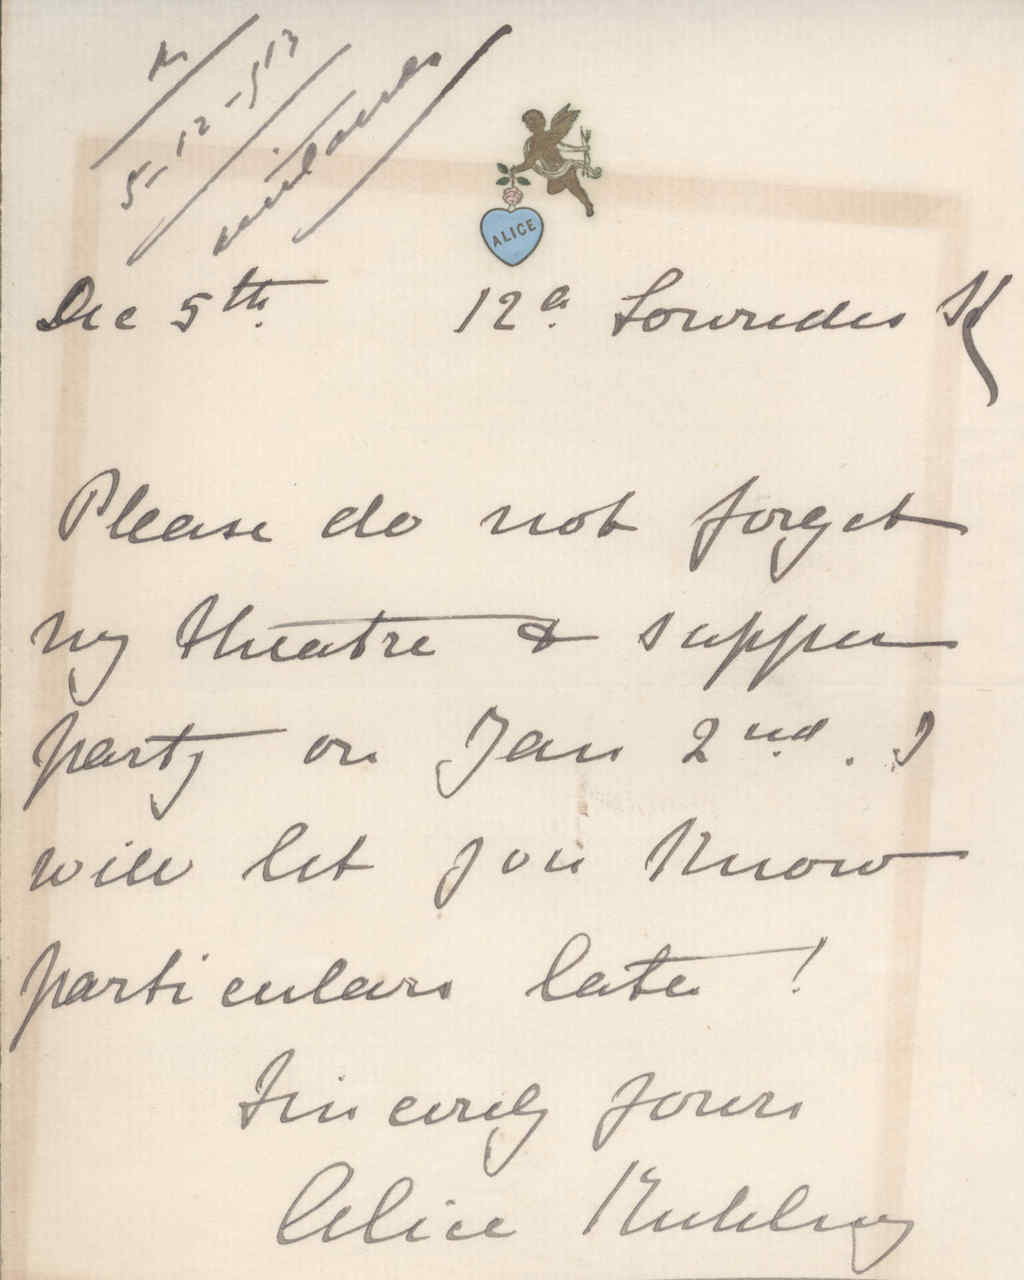 5-12-513
ALICE
Dec 5th. 12a. Lowndes St
Please do not forget
my theatre & supper
party on Jan 2nd. I
will let you know
particulars later!
Sincerely yours
Alice